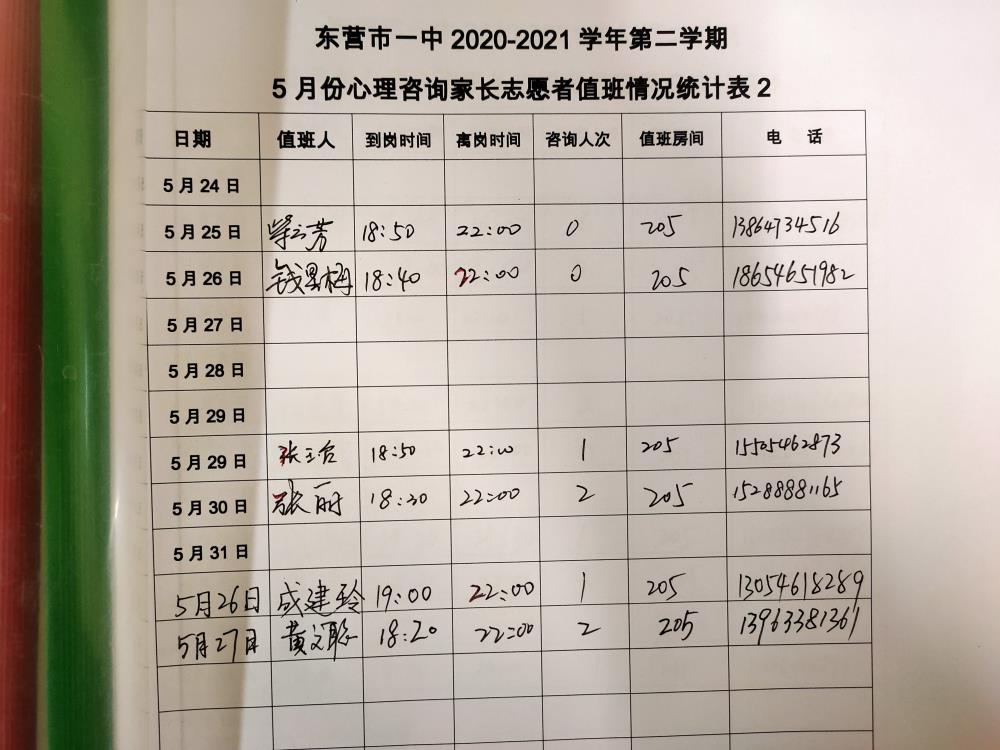 东营市一中 2020-2021 学年第二学期
5 月份心理咨询家长志愿者值班情况统计表 2
日期 值班人 到岗时间 离岗时间 咨询人次 值班房间 电 话
5 月 24 日
5 月 25 日 芳 18:50 22:00 0 205 13864734516
5 月 26 日 钱 梅 18:40 22:00 0 205 18654651982
5 月 27 日
5 月 28 日
5 月 29 日
5 月 29 日 张 18:50 22:00 1 205 15505462873
5 月 30 日 张丽 18:30 22:00 2 205 15288881165
5 月 31 日
5月26日 成建玲 19:00 22:00 1 205 13054618289
5月27日 黄文聪 18:20 22:00 2 205 13963381361